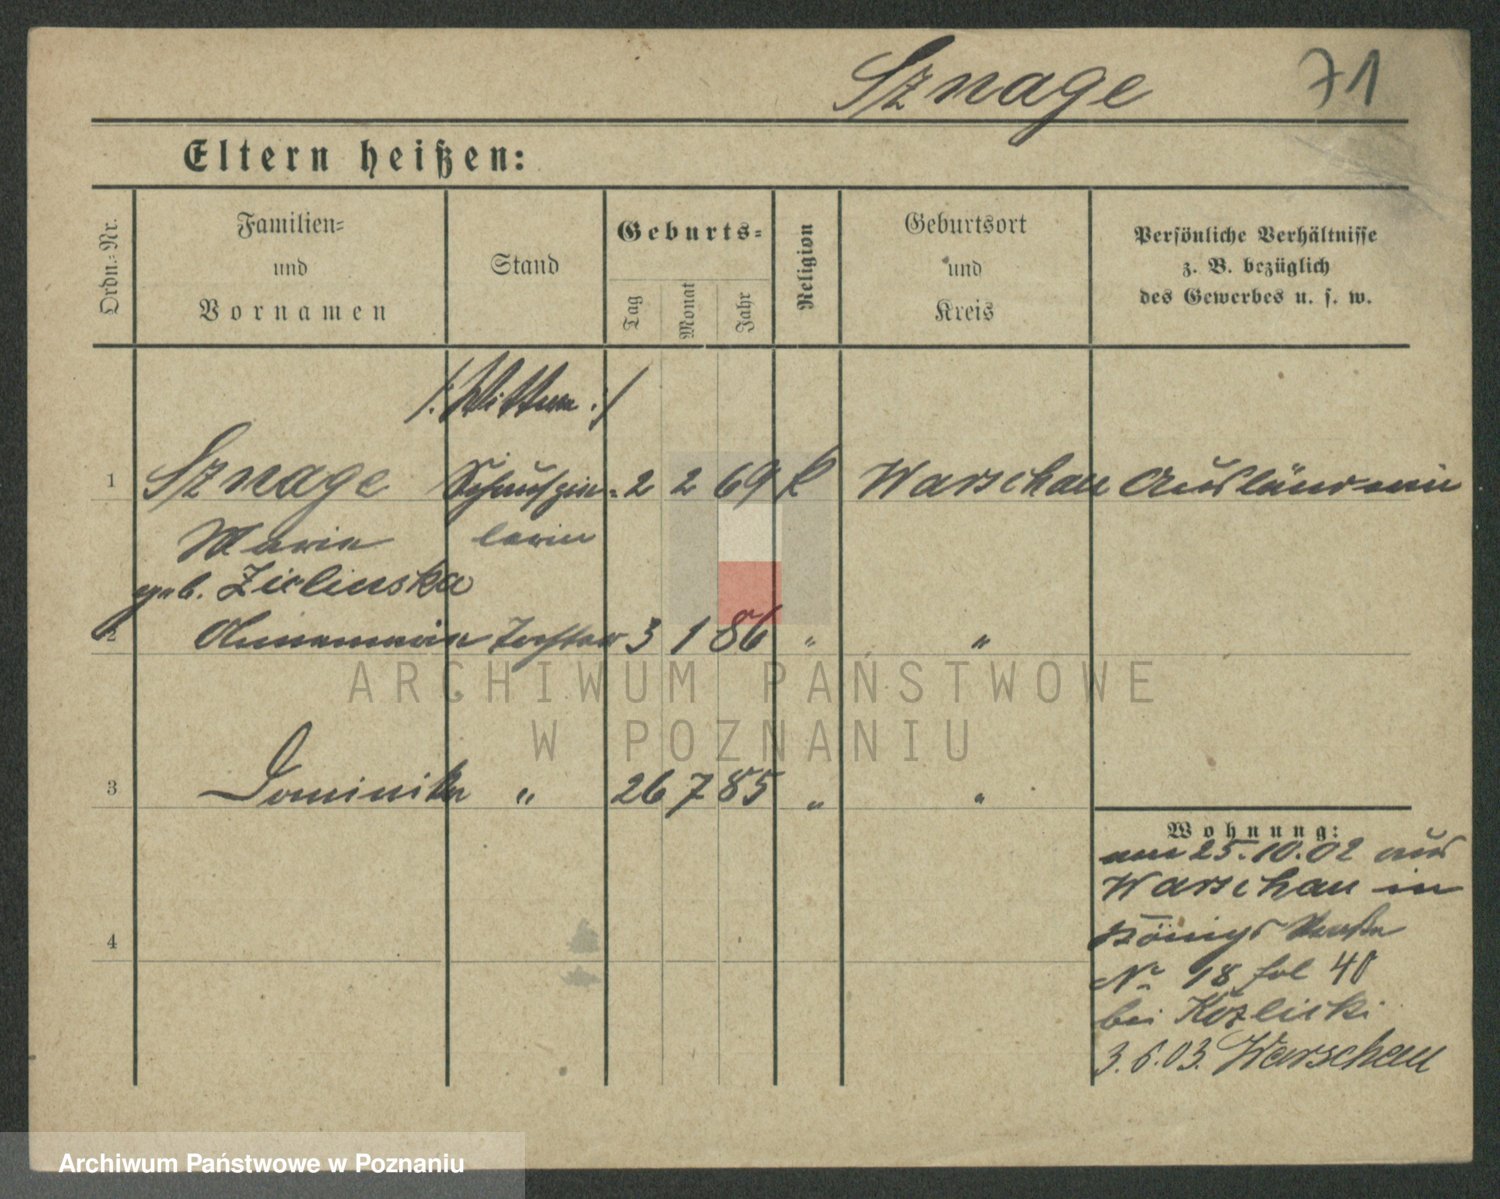 Sznage 71
Eltern heißen:
Ordn.-Nr.
Familien-
und
Vornamen
Stand
Geburts-
Tag
Monat
Jahr
Religion
Geburtsort
und
Kreis
Persönliche Verhältnisse
z. B. bezüglich
des Gewerbes u. s. w.
/: Wittwe :/
1 Sznage Schauspie- 2 2 69 k Warschau Ausländerin
Marie lerin
geb. Zielinska
2 Annamarie Tochter 3 1 86 " "
ARCHIWUM PAŃSTWOWE
W POZNANIU
3 Dominika " 26 7 85 " "
Wohnung:
am 25.10.02 aus
Warschau in
4 Königsstraße
No 18 fol 40
bei Kozlicki
3.6.03. Warschau
Archiwum Państwowe w Poznaniu